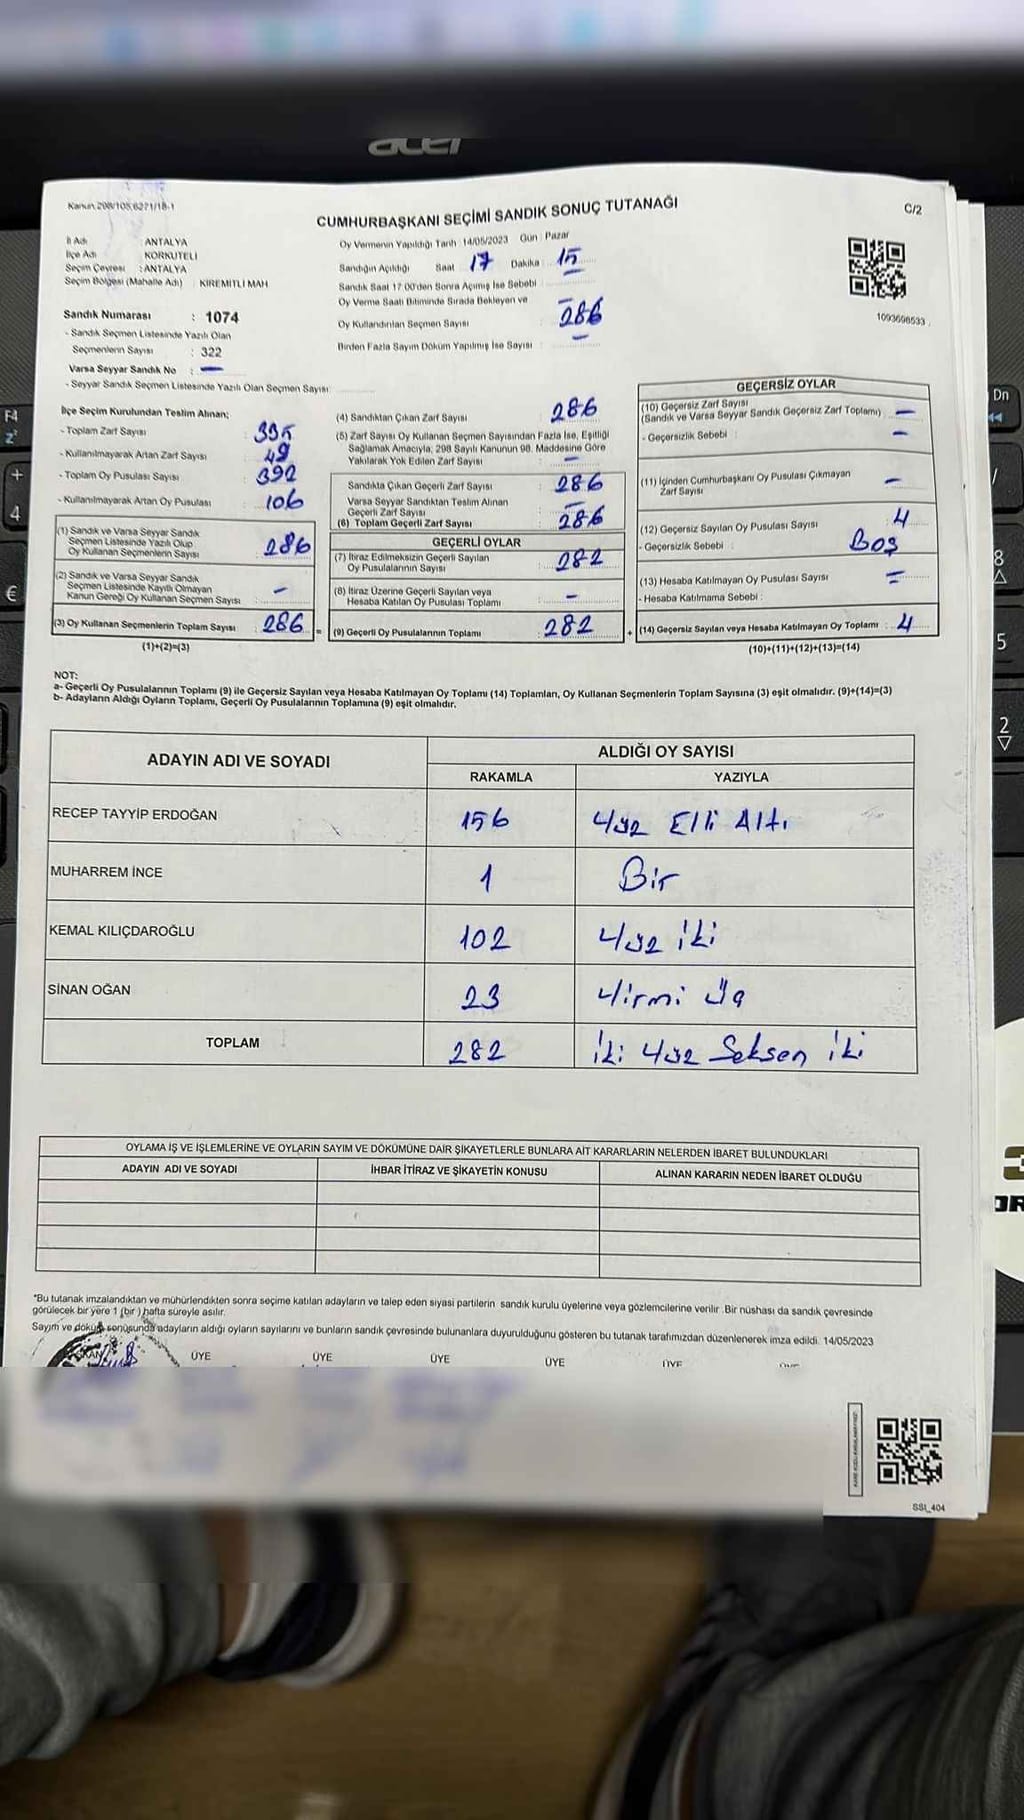 acer
Kanun 298/105,6271/18-1
CUMHURBAŞKANI SEÇİMİ SANDIK SONUÇ TUTANAĞI
C/2
İl Adı : ANTALYA
İlçe Adı : KORKUTELİ
Seçim Çevresi : ANTALYA
Seçim Bölgesi (Mahalle Adı) : KIREMITLI MAH
Sandık Numarası : 1074
- Sandık Seçmen Listesinde Yazılı Olan
Seçmenlerin Sayısı : 322
Varsa Seyyar Sandık No : —
- Seyyar Sandık Seçmen Listesinde Yazılı Olan Seçmen Sayısı:
Oy Vermenin Yapıldığı Tarih :14/05/2023 Gün : Pazar
Sandığın Açıldığı Saat 17 Dakika 15
Sandık Saat 17:00'den Sonra Açımış İse Sebebi :
Oy Verme Saati Bitiminde Sırada Bekleyen ve : —
Oy Kullandırılan Seçmen Sayısı : 286
Birden Fazla Sayım Döküm Yapılmış İse Sayısı : —
1093698533
İlçe Seçim Kurulundan Teslim Alınan;
- Toplam Zarf Sayısı :
- Kullanılmayarak Artan Zarf Sayısı : 49
- Toplam Oy Pusulası Sayısı : 392
- Kullanılmayarak Artan Oy Pusulası : 106
(1) Sandık ve Varsa Seyyar Sandık
Seçmen Listesinde Yazılı Olup
Oy Kullanan Seçmenlerin Sayısı : 286
(2) Sandık ve Varsa Seyyar Sandık
Seçmen Listesinde Kayıtlı Olmayan
Kanun Gereği Oy Kullanan Seçmen Sayısı : -
(3) Oy Kullanan Seçmenlerin Toplam Sayısı : 286
(1)+(2)=(3)
(4) Sandıktan Çıkan Zarf Sayısı : 286
(5) Zarf Sayısı Oy Kullanan Seçmen Sayısından Fazla İse, Eşitliği
Sağlamak Amacıyla; 298 Sayılı Kanunun 98. Maddesine Göre
Yakılarak Yok Edilen Zarf Sayısı : —
Sandıkta Çıkan Geçerli Zarf Sayısı : 286
Varsa Seyyar Sandıktan Teslim Alınan
Geçerli Zarf Sayısı : —
(6) Toplam Geçerli Zarf Sayısı : 286
GEÇERLİ OYLAR
(7) İtiraz Edilmeksizin Geçerli Sayılan
Oy Pusulalarının Sayısı : 282
(8) İtiraz Üzerine Geçerli Sayılan veya
Hesaba Katılan Oy Pusulası Toplamı : -
(9) Geçerli Oy Pusulalarının Toplamı : 282
GEÇERSİZ OYLAR
(10) Geçersiz Zarf Sayısı
(Sandık ve Varsa Seyyar Sandık Geçersiz Zarf Toplamı) : —
- Geçersizlik Sebebi : —
(11) İçinden Cumhurbaşkanı Oy Pusulası Çıkmayan
Zarf Sayısı : —
(12) Geçersiz Sayılan Oy Pusulası Sayısı : 4
- Geçersizlik Sebebi : Boş
(13) Hesaba Katılmayan Oy Pusulası Sayısı : —
- Hesaba Katılmama Sebebi :
(14) Geçersiz Sayılan veya Hesaba Katılmayan Oy Toplamı : 4
(10)+(11)+(12)+(13)=(14)
NOT:
a- Geçerli Oy Pusulalarının Toplamı (9) ile Geçersiz Sayılan veya Hesaba Katılmayan Oy Toplamı (14) Toplamları, Oy Kullanan Seçmenlerin Toplam Sayısına (3) eşit olmalıdır. (9)+(14)=(3)
b- Adayların Aldığı Oyların Toplamı, Geçerli Oy Pusulalarının Toplamına (9) eşit olmalıdır.
ADAYIN ADI VE SOYADI
ALDIĞI OY SAYISI
RAKAMLA YAZIYLA
RECEP TAYYİP ERDOĞAN 156 Yüz Elli Altı
MUHARREM İNCE 1 Bir
KEMAL KILIÇDAROĞLU 102 Yüz İki
SİNAN OĞAN 23 Yirmi Üç
TOPLAM 282 İki Yüz Seksen İki
OYLAMA İŞ VE İŞLEMLERİNE VE OYLARIN SAYIM VE DÖKÜMÜNE DAİR ŞİKAYETLERLE BUNLARA AİT KARARLARIN NELERDEN İBARET BULUNDUKLARI
ADAYIN ADI VE SOYADI İHBAR İTİRAZ VE ŞİKAYETİN KONUSU ALINAN KARARIN NEDEN İBARET OLDUĞU
*Bu tutanak imzalandıktan ve mühürlendikten sonra seçime katılan adayların ve talep eden siyasi partilerin sandık kurulu üyelerine veya gözlemcilerine verilir .Bir nüshası da sandık çevresinde
görülecek bir yere 1 (bir ) hafta süreyle asılır.
Sayım ve döküm sonuşunda adayların aldığı oyların sayılarını ve bunların sandık çevresinde bulunanlara duyurulduğunu gösteren bu tutanak tarafımızdan düzenlenerek imza edildi. 14/05/2023
ÜYE ÜYE ÜYE ÜYE ÜYE
SSI_404
F4
+
4
€
Dn
/
8
5
2